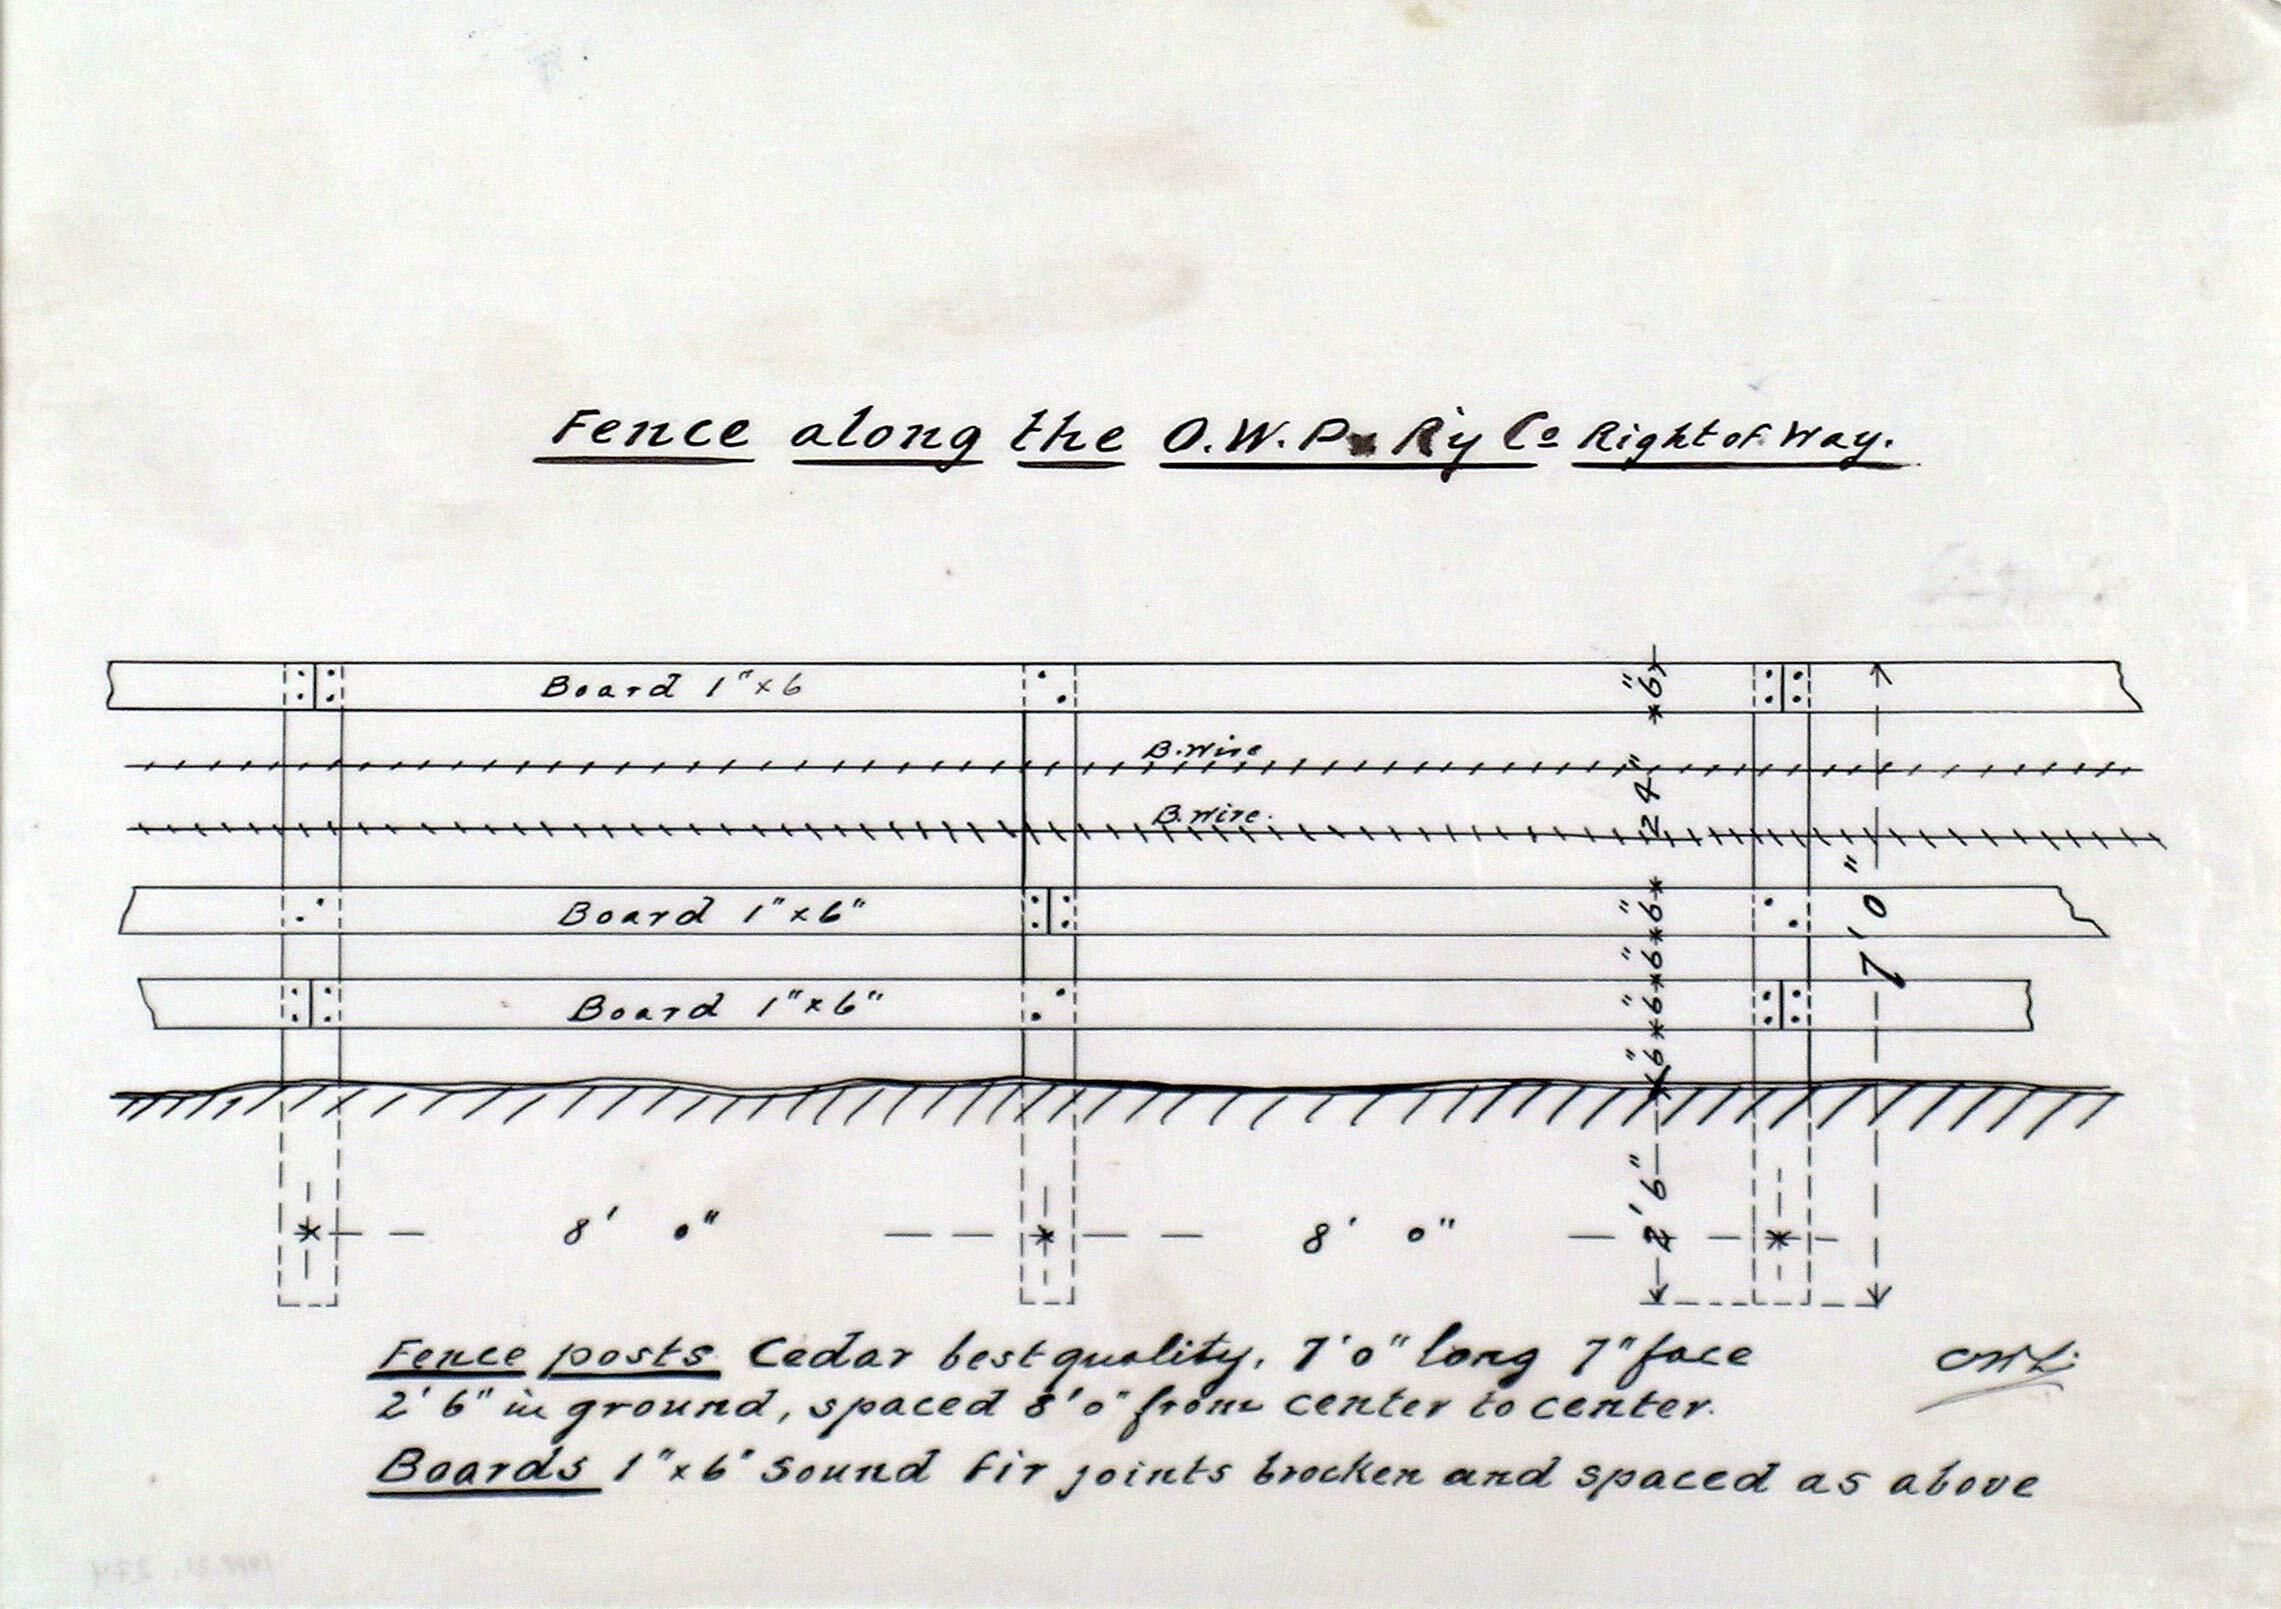 Fence along the O.W.P. Ry Co Right of Way.
Board 1" x 6
6"
B. Wire
24"
B. Wire.
Board 1" x 6"
6"
7' 0"
6"
Board 1" x 6"
6"
6"
8' 0"
8' 0"
2' 6"
Fence posts Cedar best quality, 7' 0" long 7" face
2' 6" in ground, spaced 8' 0" from center to center.
Boards 1" x 6" sound fir joints brocken and spaced as above